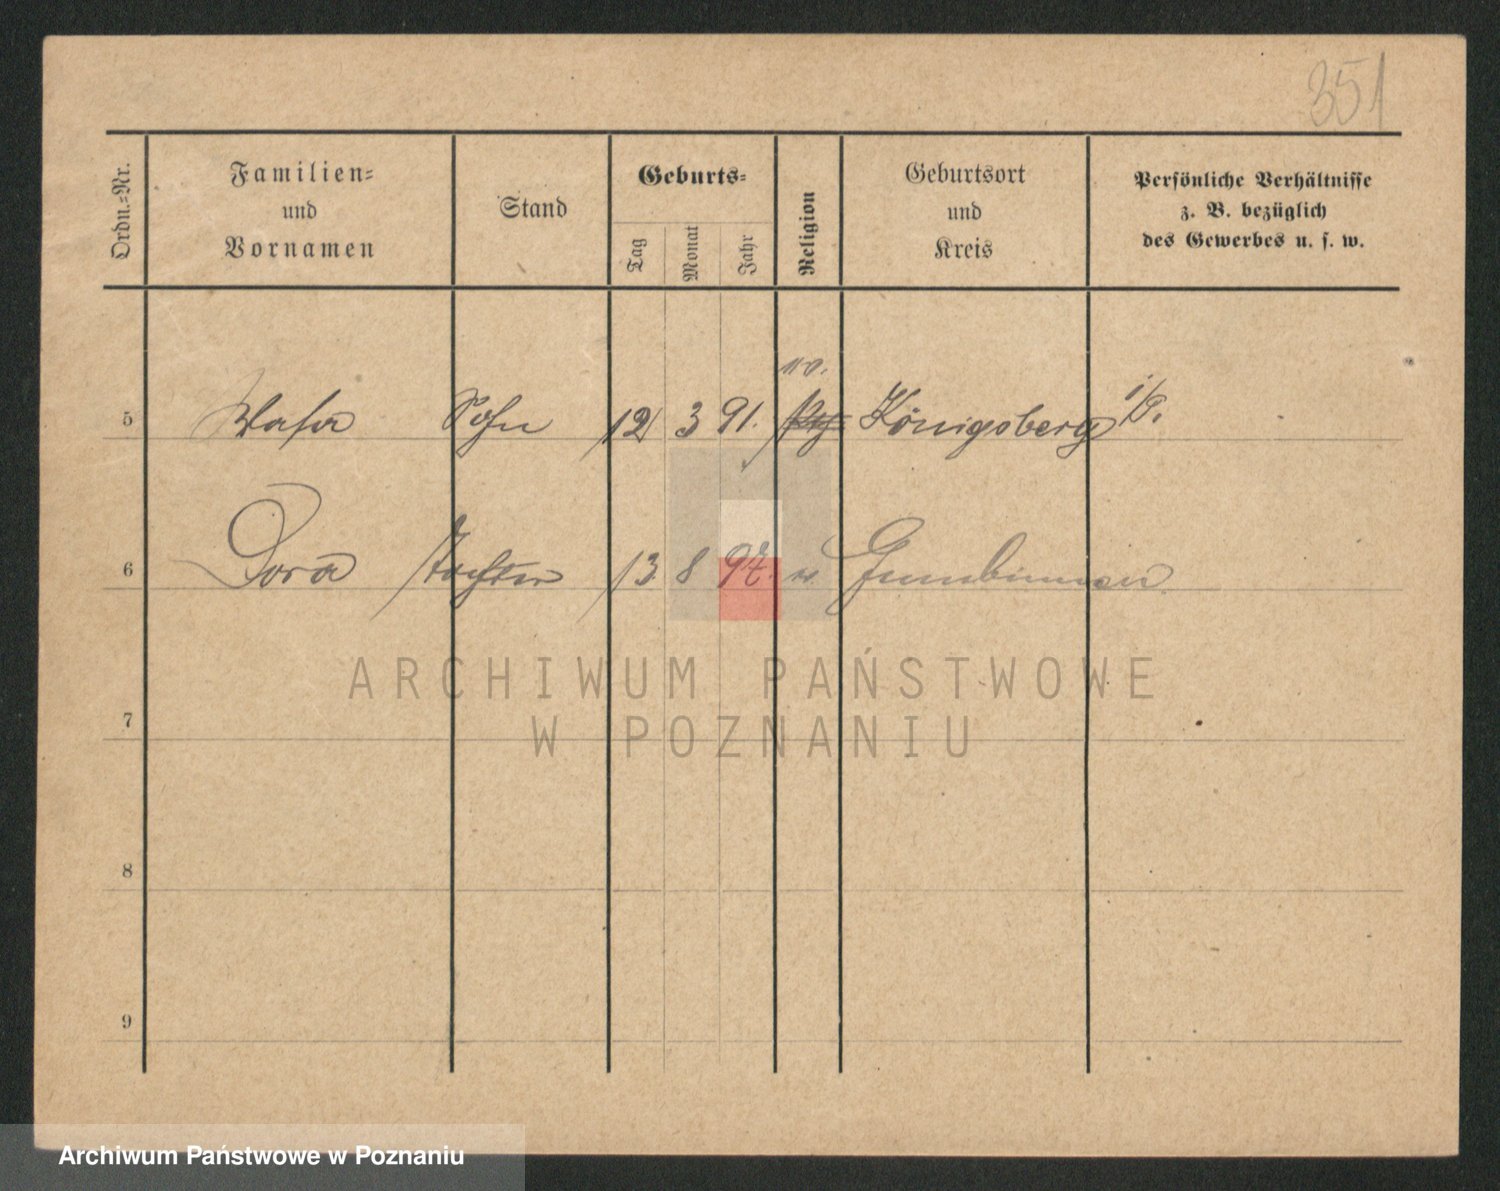 351
Ordn.-Nr.
Familien-
und
Vornamen
Stand
Geburts-
Tag
Monat
Jahr
Religion
Geburtsort
und
Kreis
Persönliche Verhältnisse
z. B. bezüglich
des Gewerbes u. s. w.
5 Sohn 12 3 91. Königsberg i/P.
6 Dora Tochter 13. 8 97. Gumbinnen
ARCHIWUM PAŃSTWOWE
W POZNANIU
7
8
9
Archiwum Państwowe w Poznaniu